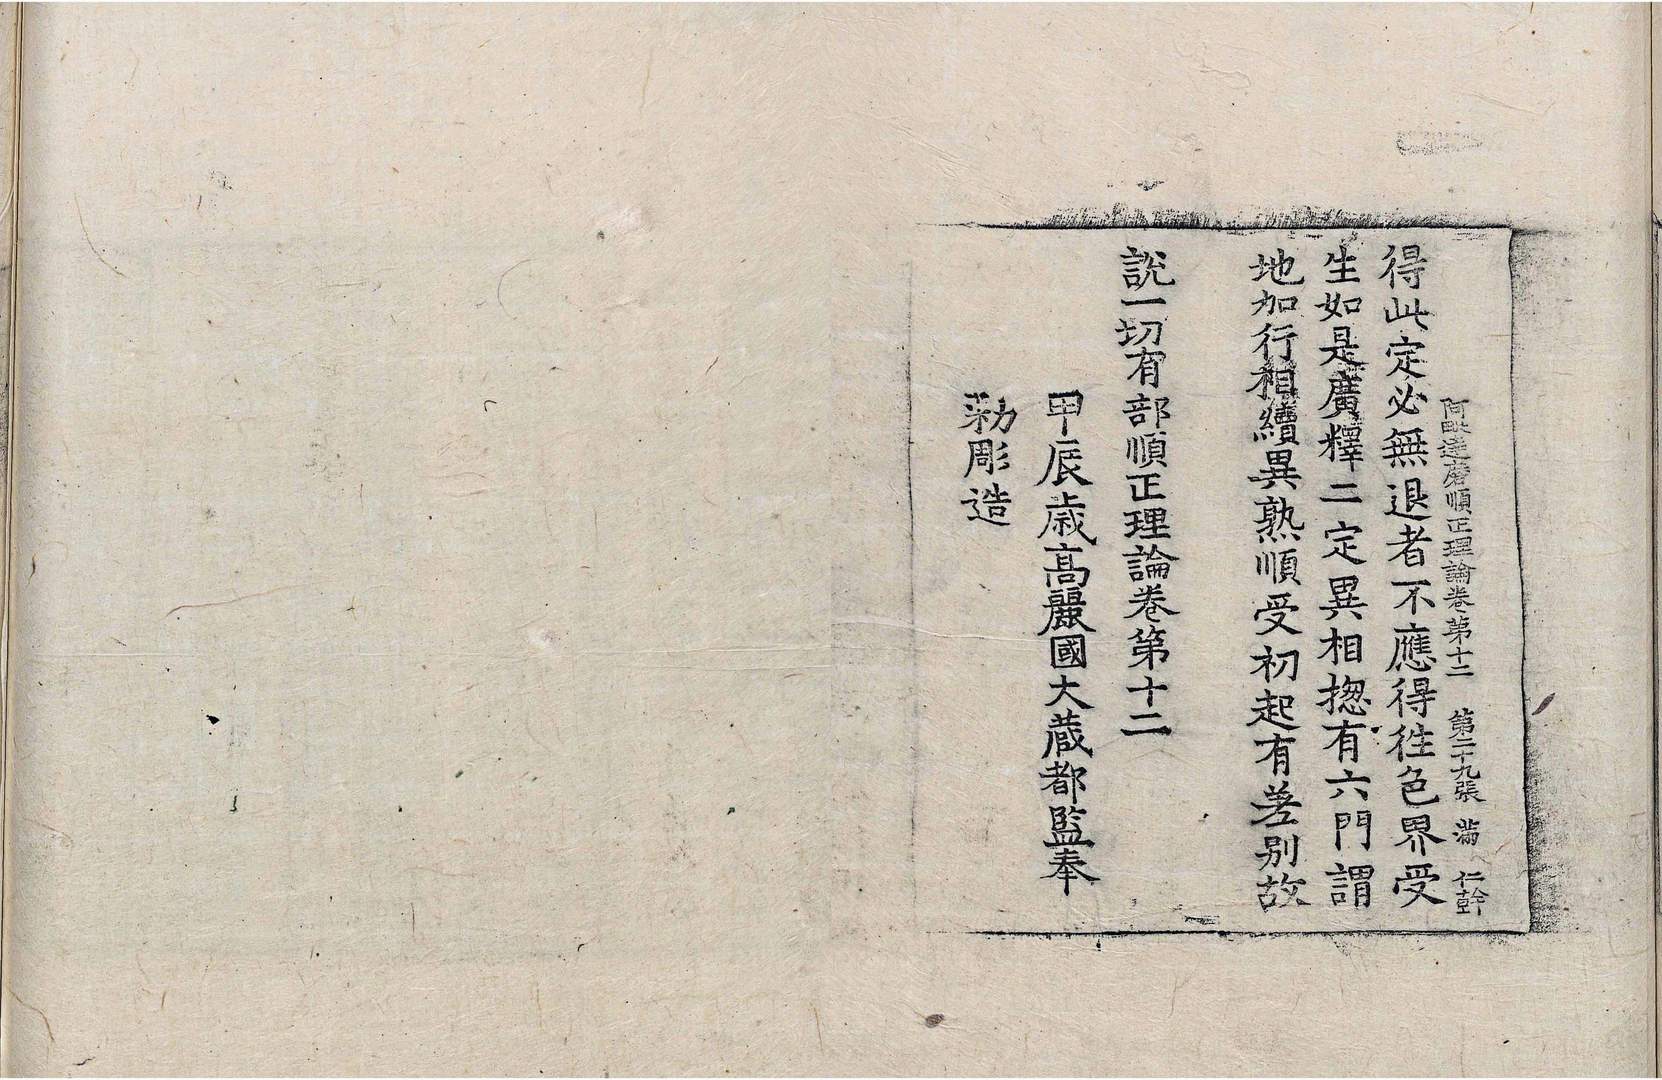 阿毗達磨順正理論卷第十二 第二十九張 滿 仁幹
得此定必無退者不應得往色界受
生如是廣釋二定異相揔有六門謂
地加行相續異熟順受初起有差別故
說一切有部順正理論卷第十二
甲辰歲高麗國大藏都監奉
勅彫造